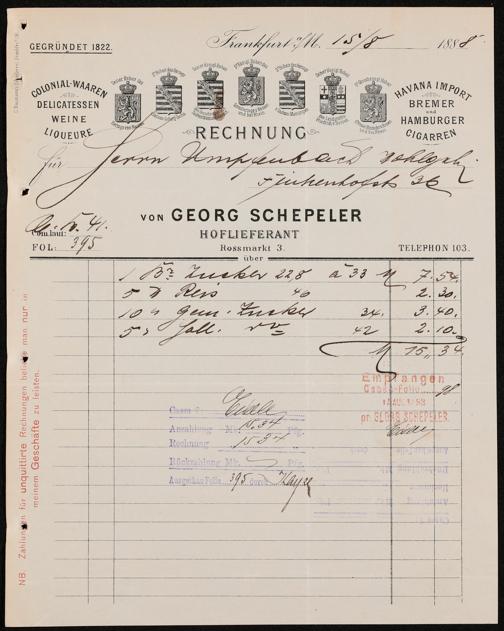 GEGRÜNDET 1822.
Frankfurt a/M. 15/8 1888.
COLONIAL-WAAREN
DELICATESSEN
WEINE
LIQUEURE
HAVANA IMPORT
BREMER
und
HAMBURGER
CIGARREN
RECHNUNG
für Herrn Umpfenbach Wohlgeb.
36
VON GEORG SCHEPELER
HOFLIEFERANT
Com. laut:
FOL: 395
Rossmarkt 3.
TELEPHON 103.
über
1 Zucker 22,8 à 33 M 7.54.
5 Reis 46 2.30.
10 " gem. Zucker 34. 3.40.
5 " 42 2.10.
M 15,34.
Empfangen
Cassa-Folio
pr. GEORG SCHEPELER
Anzahlung Mk. 15.34 Pfg.
Rechnung 15.34
Rückzahlung Mk. Pfg.
395 durch
NB. Zahlungen für unquittirte Rechnungen beliebe man nur in
meinem Geschäfte zu leisten.